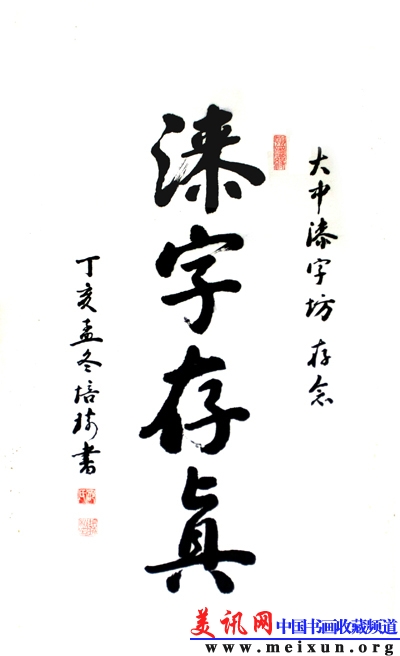 大中漆字坊 存念
漆字存真
丁亥孟冬培琦書
美讯网 中国书画收藏频道
www.meixun.org